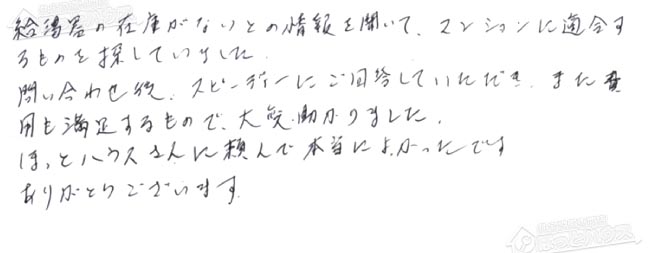 給湯器の在庫がないとの情報を聞いて、マンションに適合す
るものを探していました。
問い合わせ後、スピーディーにご回答していただき、また費
用も満足するもので、大変助かりました。
ほっとハウスさんに頼んで本当によかったです
ありがとうございます。
ほっとハウス